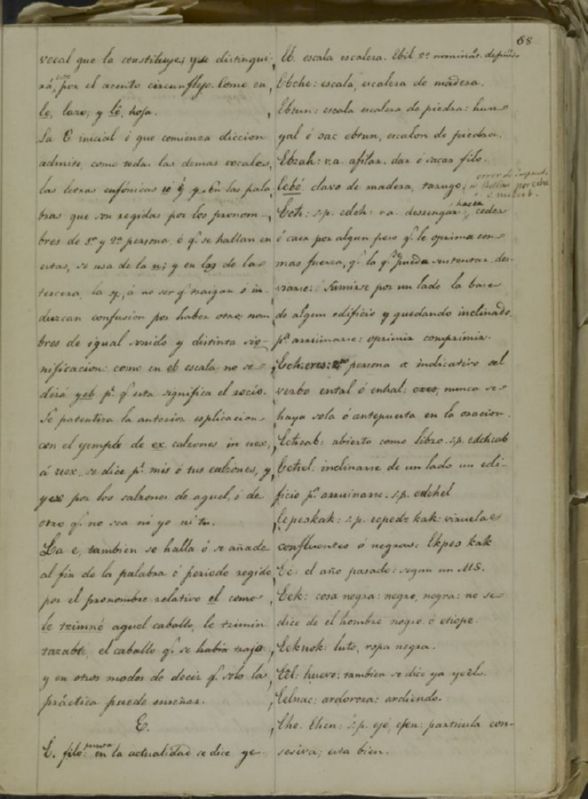 68
vocal que la constituye, y se distingui-
rá, por el acento circunflejo. Como en
le, lazo; y lê, hoja.
La E inicial ó que comienza diccion
admite, como todas las demas vocales,
las letras eufónicas u y y. En las pala-
bras que son regidas por los pronom-
bres de 1ª y 2ª persona, ó q.e se hallan en
estas, se usa de la u; y en las de la
tercera, la y, á no ser q.e traigan ó in-
duzcan confusion por haber otro nom-
bre de igual sonido y distinta sig-
nificacion: como en eb escala no se
dirá yeb p.r q.e esta significa el rocío.
Se patentiza la anterior esplicacion
con el ejemplo de ex calzones in uex,
á uex, se dice p.r mis ó tus calzones, y
yex por los calzones de aquel, ó de
otro q.e no sea ni yo ni tu.
La e, tambien se halla ó se añade
al fin de la palabra ó periodo regido
por el pronombre relativo el como
le tzimné aquel caballo, le tzimin
tazabe, el caballo q.e se habia traido,
y en otros modos de decir q.e solo la
práctica puede enseñar.
E.
E. filo: en la actualidad se dice ye-
Eb. escala escalera. Ebil
Ebche: escala, escalera de madera.
Ebtun: escala escalera de piedra: hun
yal ó zac ebtun, escalon de piedra.
Ebzah: v.a. afilar, dar ó sacar filo.
Eebó clavo de madera, tarugo,
Ech: s.p. edch: v.a. desencajar, hacer ceder
ó caer por algun peso q.e le oprima con
mas fuerza, q.e la q.e pueda sustentar
Sumirse por un lado la base
de algun edificio y quedando inclinado
p.a arruinarse: oprimir comprimir.
Ech: eres: persona de indicativo del
verbo ental ó enhal: eres, nunca se
haya sola ó antepuesta en la oracion.
Echcab: abierto como libro. s.p. edchcab
Echel: inclinarse de un lado un edi-
ficio p.a arruinarse. s.p. edchel
Ecpeskak: s.p. ecpedz kak: viruelas
confluentes ó negras: Ekpes kak
Ec: el año pasado: segun un MS.
Eek: cosa negra: negro, negra: no se
dice de el hombre negro ó etiope.
Eeknok: luto, ropa negra.
Eel: huevo: tambien se dice ya yeel.
Eelnac: ardoroso: ardiendo.
Ehe. Ehen: s.p. eje, ejen: particula con-
sesiva; esta bien.